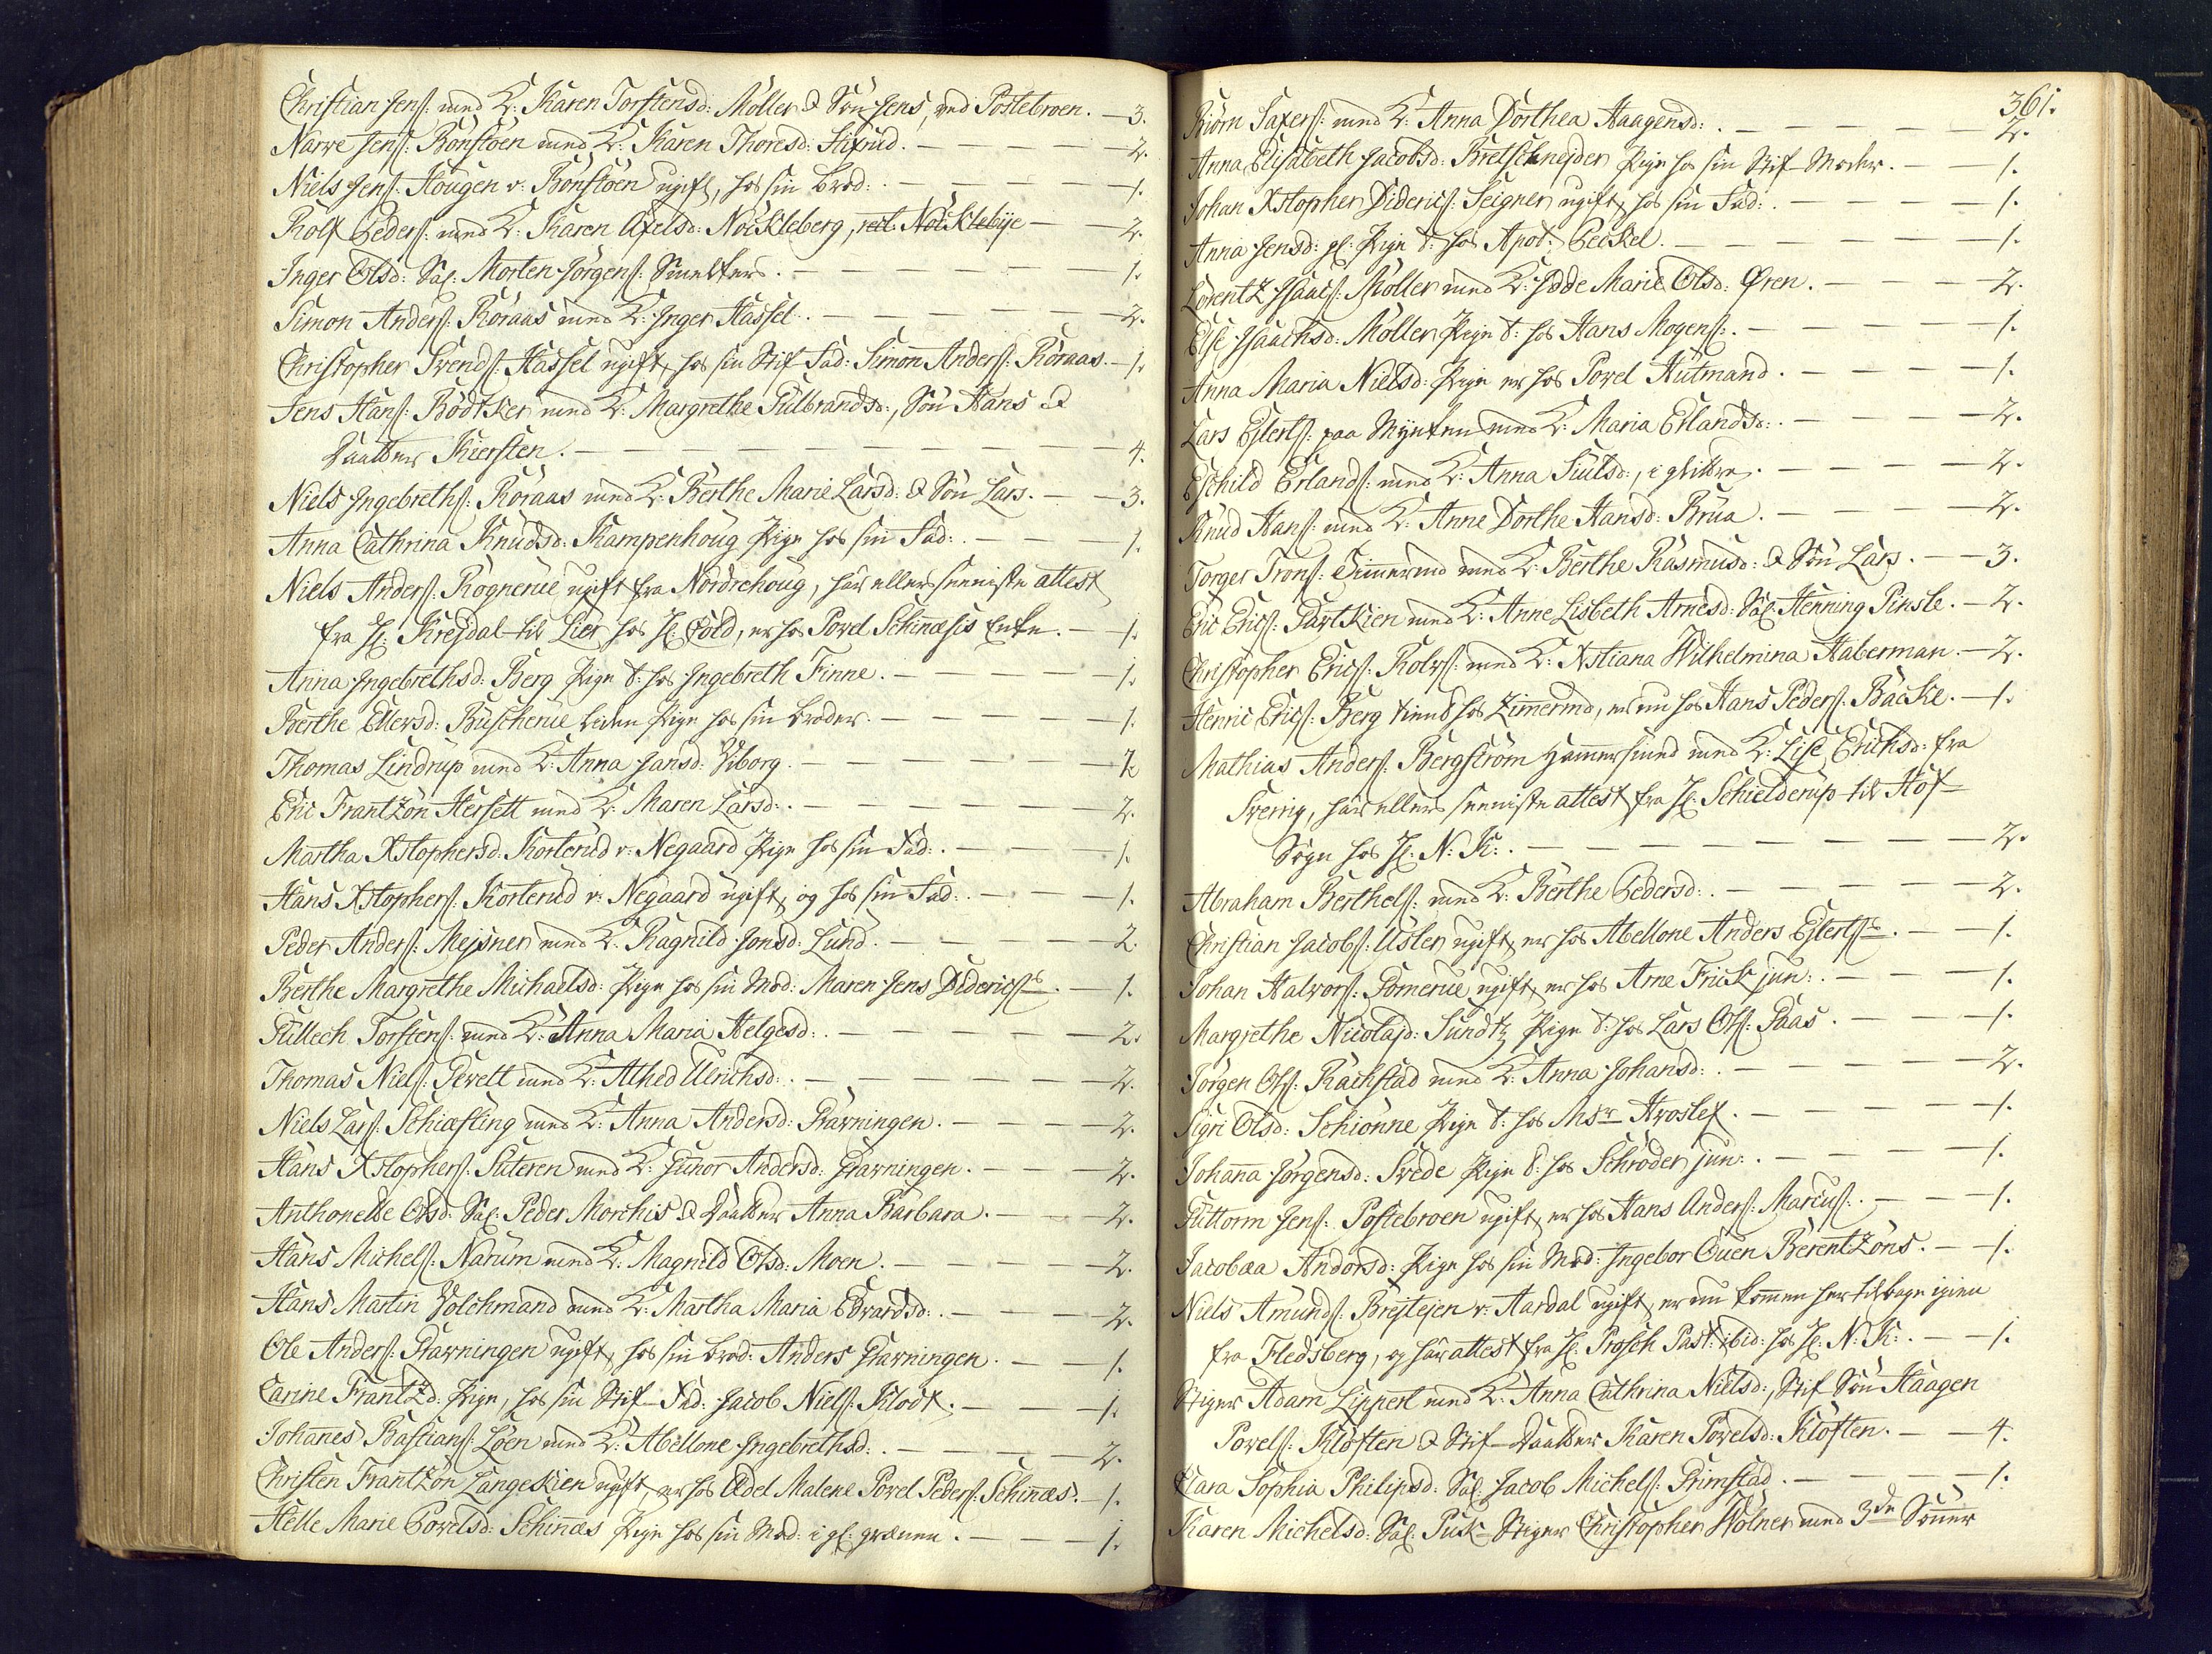 Christian Jens: med K: Karen Torstensd: Möller & Sön Jens, ved Postebroen. — 3.
Narve Jens: Bönstöen med K: Karen Thoresd: Stixrud. — 2.
Niels Jens: Hougen v: Bönstöen ugift, hos sin brod: — 1.
Rolf Peders: med K: Karen Axelsd: Nöckleberg, rect. Nöcklebye — 2.
Inger Olsd: Sal: Morten Jörgens: Smelters. — 1.
Simon Anders: Röraas med K: Inger Hassel. — 2.
Christopher Svends: Hassel ugift, hos sin Stif Fad: Simon Anders: Röraas. — 1.
Jens Hans: Bödtker med K: Margrethe Gulbrandsd:, Sön Hans &
Daatter Kiersten. — 4.
Niels Ingebreths: Röraas med K: Berthe Marie Larsd: & Sön Lars. — 3.
Anna Cathrina Knudsd: Kampenhoug Pige hos sin Fad: — 1.
Niels Anders: Rognerue ugift fra Nordrehoug, har ellers seeniste attest
fra H: Krejdal til Lier hos H: Cold, er hos Povel Schinnesis Enke. — 1.
Anna Ingebrethsd: Berg Pige t: hos Ingebreth Finne. — 1.
Berthe Ellersd: Buscherue liden Pige hos sin broder. — 1.
Thomas Lindrup med K: Anna Jansd: Viborg. — 2
Eric Frantzön Hersett med K: Maren Larsd: — 2.
Martha Xstophersd: Korterud v: Negaard Pige hos sin Fad: — 1.
Hans Xstophers: Korterud v: Negaard ugift, og hos sin Fad: — 1.
Peder Anders: Mejsner med K: Ragnild Jonsd: Lund. — 2.
Berthe Margrethe Michaelsd: Pige hos sin Mod: Maren Jens Diderics: — 1.
Gullech Torstens: med K: Anna Maria Helgesd: — 2.
Thomas Niels: Gevelt med K: Alhed Ulrichsd: — 2.
Niels Lars: Schiæsling med K: Anna Andersd: Gravningen. — 2.
Hans Xstophers: Suteren med K: Gunor Andersd: Gravningen. — 2.
Anthonette Olsd: Sal: Peder Morchis & Daatter Anna Barbara. — 2.
Hans Michels: Narum med K: Magnild Olsd: Moen. — 2.
Hans Martin Volchmand med K: Martha Maria Edvardsd: — 2.
Ole Anders: Gravningen ugift, hos sin brod: Anders Gravningen. — 1.
Carine Frantzd: Pige, hos sin Stif-Fad: Jacob Niels: Klodt. — 1.
Johanes Bastians: Löen med K: Abellone Ingebrethsd: — 2.
Christen Frantzön Langeskien ugift, er hos Edel Malene Povel Peders: Schinnes. — 1.
Helle Marie Povelsd: Schinnes Pige hos sin Mod: i gl: grænen. — 1.
361.
Biörn Saxers: med K: Anna Dorthea Haagensd: — 2.
Anna Elisabeth Jacobsd: Bretschnejder Pige hos sin Stif-Moder. — 1.
Johan Xstopher Diderics: Seigner ugift, hos sin Fad: — 1.
Anna Jensd: gl: Pige t: hos Apot: Peckel. — 1.
Lorentz Isaacs: Möller med K: Hedde Marie Olsd: Øren. — 2.
Else Isaachsd: Möller Pige t: hos Hans Mogens: — 1.
Anna Maria Nielsd: Pige er hos Povel Hutmand. — 1.
Lars Eylerts: paa Mynten med K: Maria Erlandsd: — 2.
Eschild Erlands: med K: Anna Siulsd:, i glitter. — 2.
Knud Hans: med K: Anne Dorthe Hansd: Brua. — 2.
Torger Trons: Timermd med K: Berthe Rasmusd: & Sön Lars. — 3.
Eric Erics: Partkien med K: Anne Lisbeth Arnesd: Sal: Henning Pinsle. — 2.
Christopher Erics: Rolvs: med K: Xstiana Wilhelmina Haberman. — 2.
Henric Erics: Berg tiend hos Zimermd, er nu hos Hans Peders: Backe. — 1.
Mathias Anders: Bergström Hammersmed med K: Lise Erichsd: fra
Sverrig, har ellers seeniste attest fra H: Schielderup til Hof-
Sogn hos H: N: K: — 2.
Abraham Berthels: med K: Berthe Pedersd: — 2.
Christian Jacobs: Usler ugift, er hos Abellone Anders Eylerts: — 1.
Johan Halvors: Gomerue ugift, er hos Arne Frick jun: — 1.
Margrethe Nicolajd: Sundtz Pige t: hos Lars Ols: Paas. — 1.
Jörgen Ols: Rachstad med K: Anna Johansd: — 2.
Sigri Olsd: Schiönne Pige t: hos Msr Hroslef. — 1.
Johana Jörgensd: Svede Pige t: hos Schröder jun: — 1.
Guttorm Jens: Postebroen ugift, er hos Hans Anders: Marcus: — 1.
Jacobæa Andorsd: Pige hos sin Mod: Ingebor Ouen Berentzöns. — 1.
Niels Amunds: Brejlejen v: Aardal ugift, er nu kommen her tilbage igien
fra Fledsberg, og har attest fra H: Prosch Past: ibid: hos H: N: K: — 1.
Stiger Adam Lippert med K: Anna Cathrina Nielsd:, Stif Sön Haagen
Povels: Klöften & Stif-Daatter Karen Povelsd: Klöften. — 4.
Clara Sophia Philipsd: Sal: Jacob Michels: Grimstad. — 1.
Karen Michelsd: Sal: Puk-Stiger Christopher Wölner med 3de Sönner